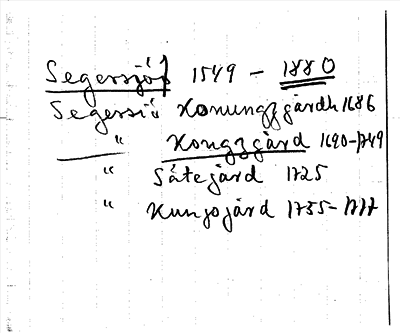 Segersjö 1549 – 1880
Segersiö Konungzgårdh 1686
" Kongzgård 1690-1749
" Sätegård 1725
" Kungsgård 1735-1777